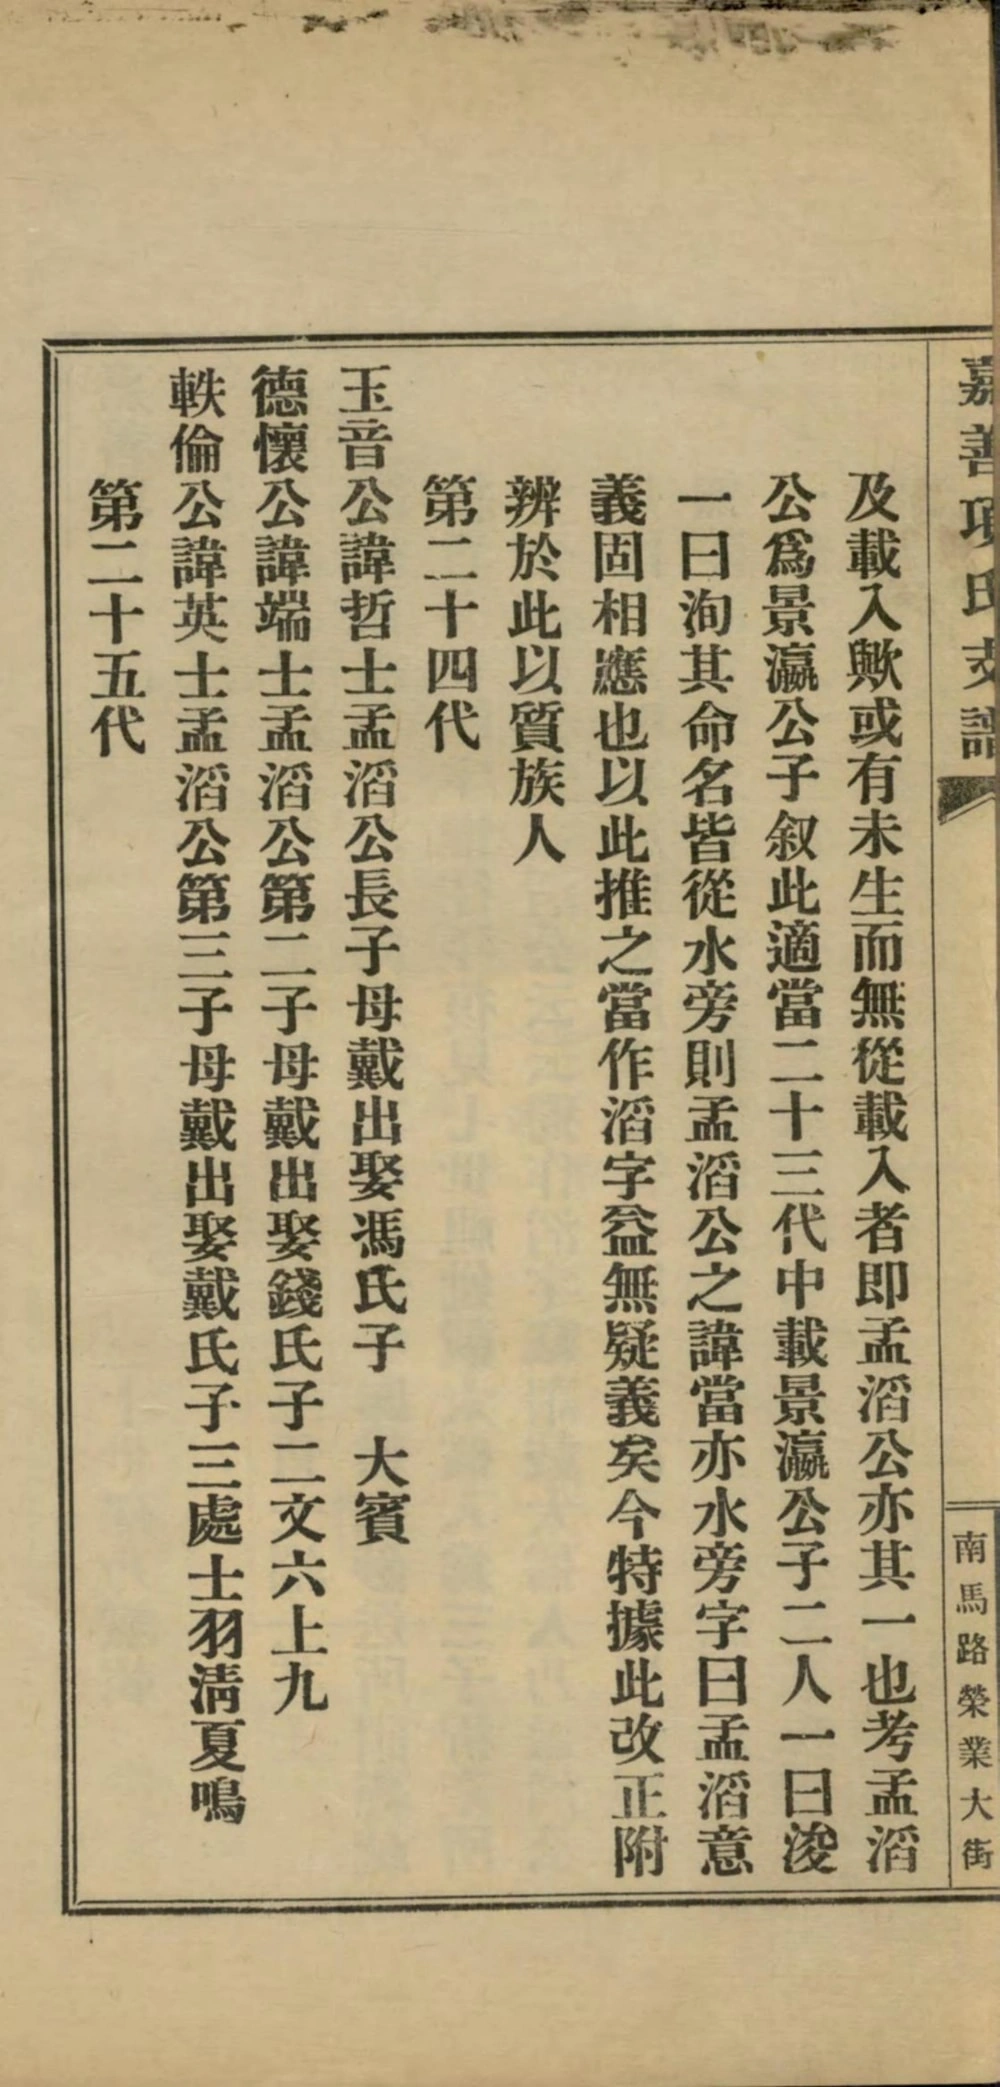 嘉善項氏支譜
南馬路榮業大街
及載入歟或有未生而無從載入者即孟滔公亦其一也考孟滔
公爲景瀛公子叙此適當二十三代中載景瀛公子二人一曰浚
一曰洵其命名皆從水旁則孟滔公之諱當亦水旁字曰孟滔意
義固相應也以此推之當作滔字益無疑義矣今特據此改正附
辨於此以質族人
第二十四代
玉音公諱哲士孟滔公長子母戴出娶馮氏子　大賓
德懷公諱端士孟滔公第二子母戴出娶錢氏子二文六上九
軼倫公諱英士孟滔公第三子母戴出娶戴氏子三處士羽清夏鳴
第二十五代